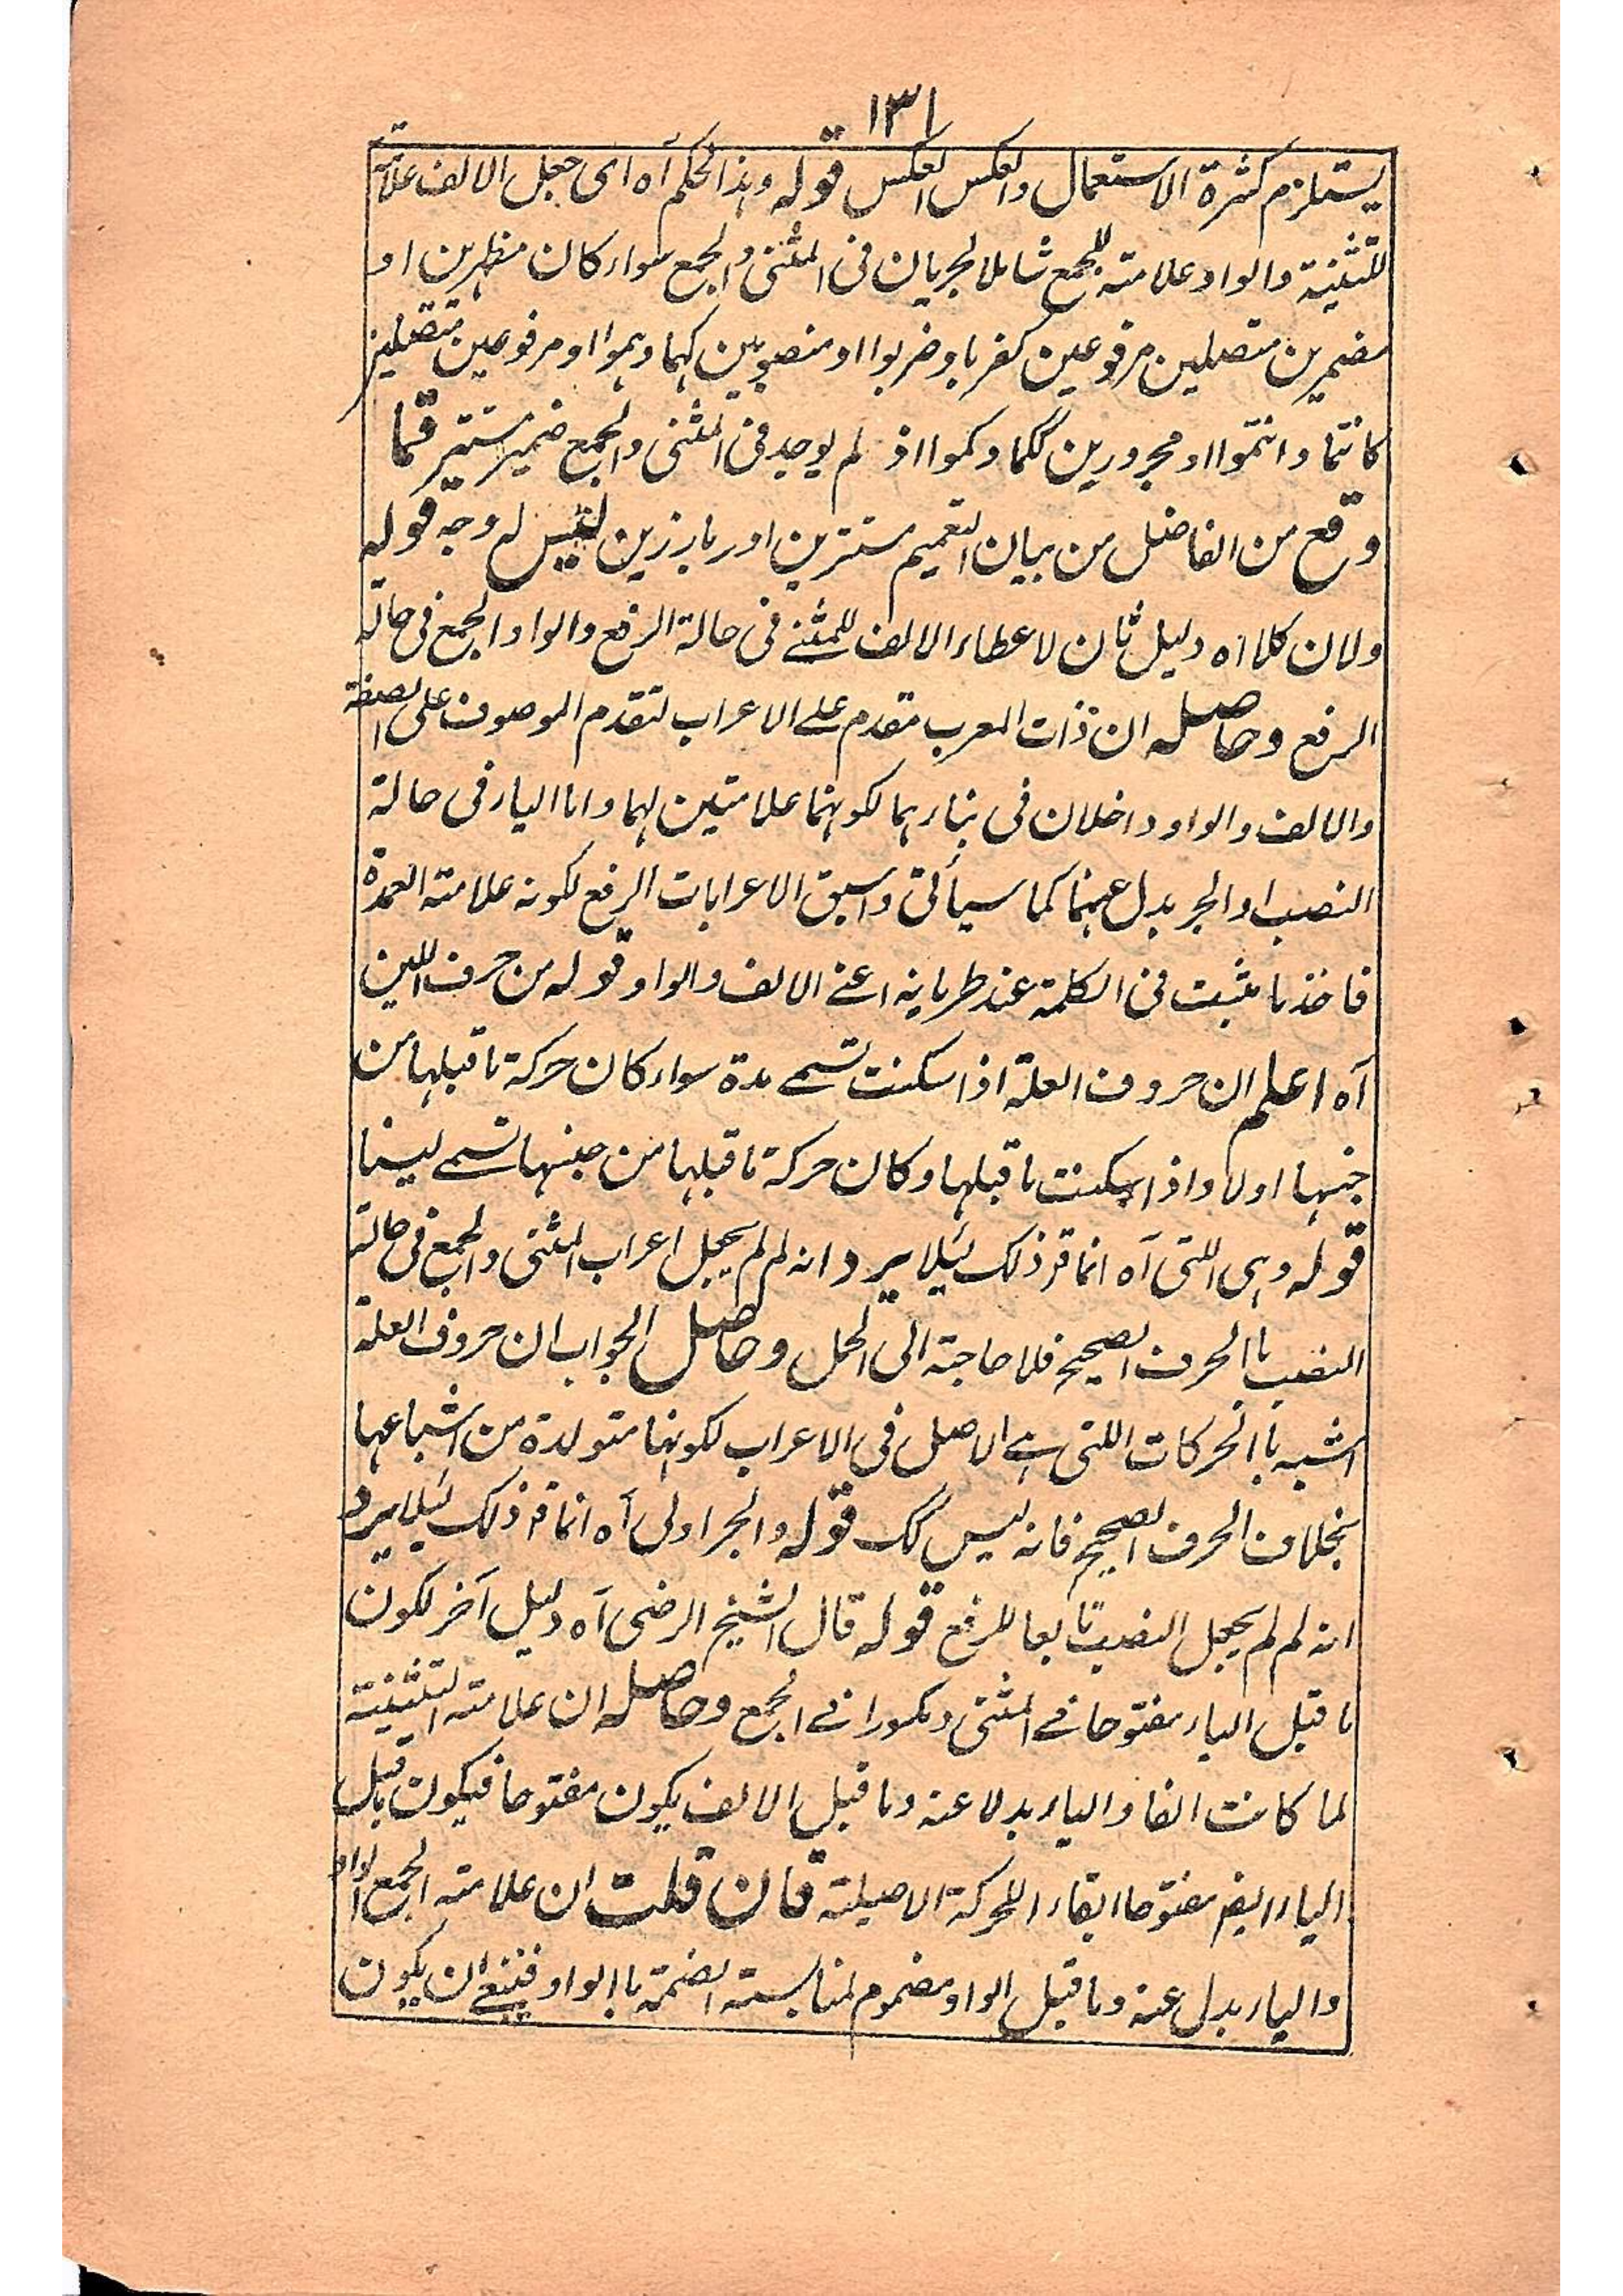 ١٣١
يستلزم كثرة الاستعمال والعكس العكس قوله وهذا الحكم آه اى جعل الالف علامة
للتثنية والواو علامته للجمع شاملا لجريان فى المثنى والجمع سواء كان مظهرين او
مضمرين متصلين مرفوعين كضربا وضربوا او منصوبين كهما وهموا او مرفوعين منفصلين
كانتما وانتموا او مجرورين لكما وكموا اذ لم يوجد فى المثنى والجمع ضمير مستتر فما
وقع من الفاضل من بيان التعميم مستترين او بارزين ليس له وجه قوله
ولان كلا آه دليل ثان لاعطاء الالف للمثنے فى حالة الرفع والواو الجمع فى حالة
الرفع وحاصله ان ذات المعرب مقدم علے الاعراب لتقدم الموصوف على الصفة
والالف والواو داخلان فى بناء هما لكونهما علامتين لهما واما الياء فى حالة
النصب او الجر بدل عنهما كما سيأتى واسبق الاعرابات الرفع لكونه علامته العمدة
فاخذ ما يثبت فى الكلمة عند طريانه اعنے الالف والواو قوله من حرف اللين
آه اعلم ان حروف العلة اذا سكنت تسمے مدة سواء كان حركة ما قبلها من
جنسها او لا واذا سكنت ما قبلها وكان حركة ما قبلها من جنسها تسمے لينا
قوله وهى اللتى آه انما قرر ذلك لئلا يرد انه لم لم يجعل اعراب المثنى والجمع فى حالة
النصب باالحرف الصحيح فلا حاجة الى الحمل وحاصل الجواب ان حروف العلة
اشبه باالحركات اللتى هے الاصل فى الاعراب لكونها متولدة من اشباعها
بخلاف الحرف الصحيح فانه ليس كك قوله والجر اولى آه انما قرر ذلك لئلا يرد
انه لم لم يجعل النصب تابعا للرفع قوله قال الشيخ الرضى آه دليل آخر لكون
ما قبل الياء مفتوحا فے المثنى ومكسورا فے الجمع وحاصله ان علامته التثنية
لما كانت الفا والياء بدلا عنه وما قبل الالف يكون مفتوحا فيكون ما قبل
الياء ايضا مفتوحا ابقاء اللحركة الاصيلة فان قلت ان علامته الجمع الواو
والياء بدل عنه وما قبل الواو مضموم لمناسبته الضمة باالواو فينبغے ان يكون